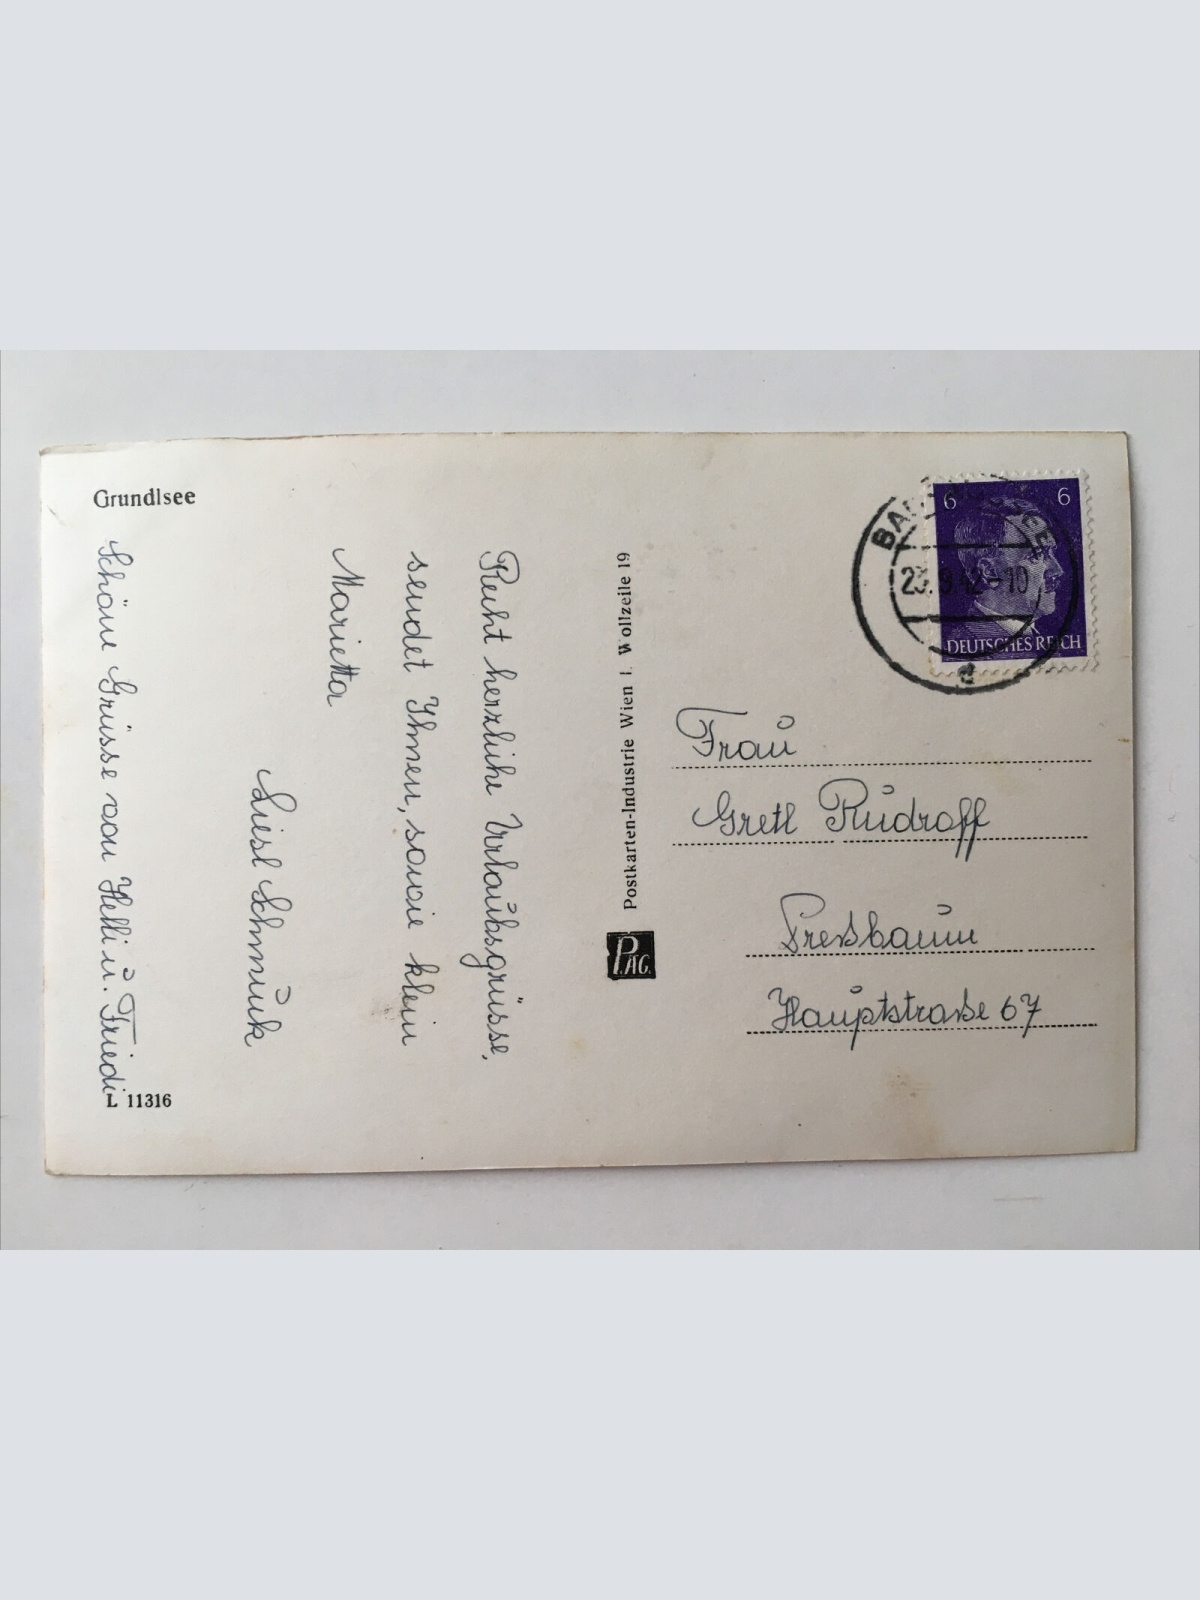 Grundlsee
Recht herzliche Urlaubsgrüsse,
sendet Ihnen, sowie klein
Marietta
Liesl Schmuck
Schöne Grüsse von Helli u. Friedi
L 11316
Postkarten-Industrie Wien I. Wollzeile 19
P.AG.
6
6
DEUTSCHES REICH
-10
d
Frau
Gretl Rudroff
Pressbaum
Hauptstraße 67